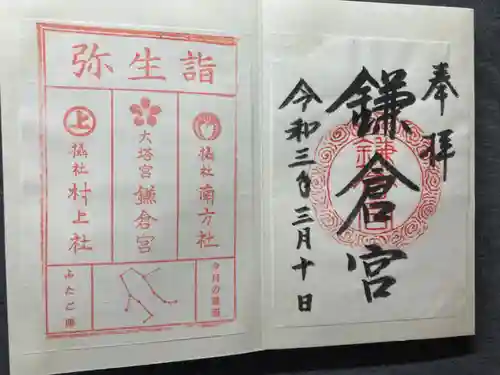 奉拝
鎌倉宮
令和三年三月十日
弥生詣
摂社 南方社
大塔宮 鎌倉宮
上
摂社 村上社
今月の星座
ふたご座